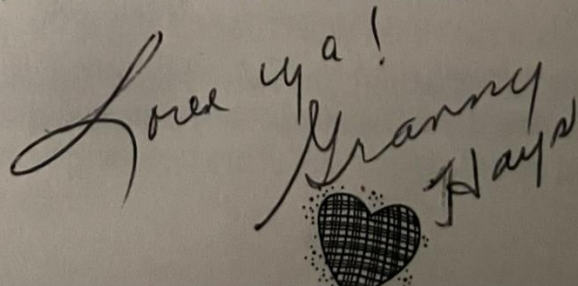 Love ya!
Granny
Hays